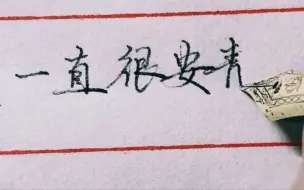 一直很安青